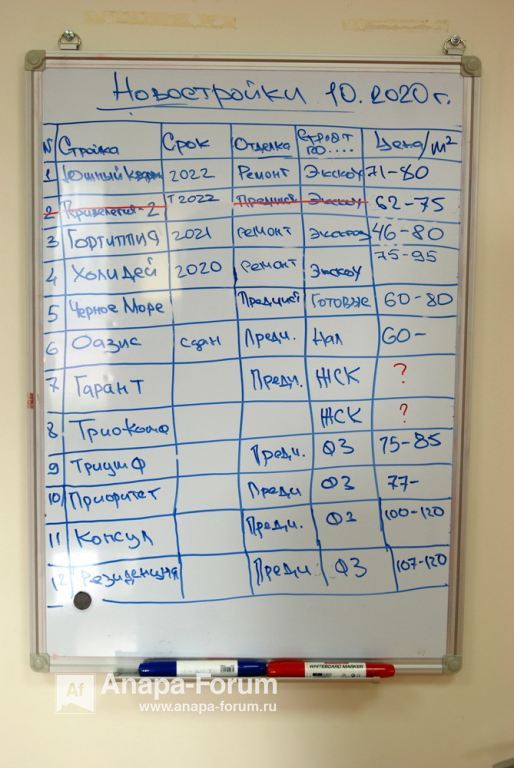 Новостройки 10.2020г.
N Стройка Срок Отделка строят по.... Цена/m²
1 Южный 2022 Ремонт Экскоу 71-80
2 Привелегия-2 2022 Предчист Экскоу 62-75
3 Горгиппия 2021 ремонт экскоу 46-80
4 Холидей 2020 ремонт Экскоу 75-95
5 Черное Море Предчист Готовые 60-80
6 Оазис сдан Предч. Нал 60-
7 Гарант Предч. ЖСК ?
8 ЖСК ?
9 Триумф Предч. ФЗ 75-85
10 Приоритет Предч ФЗ 77-
11 Консул Предч. ФЗ 100-120
12 Резиденция Предч ФЗ 107-120
WHITEBOARD MARKER
Af Anapa-Forum
www.anapa-forum.ru